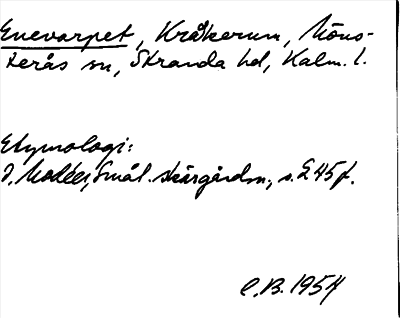 Enevarpet, Kråkerum, Möns-
terås sn, Stranda hd, Kalm. l.
Etymologi:
J. Modéer, Smål. skärgårdsn, s. 245f.
C.B. 1954